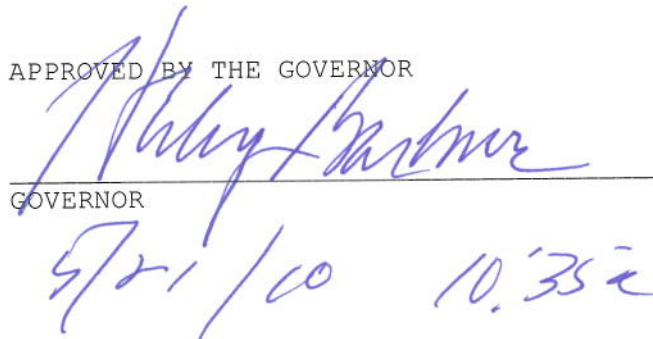 APPROVED BY THE GOVERNOR
Haley Barbour
GOVERNOR
5/21/10 10:35a